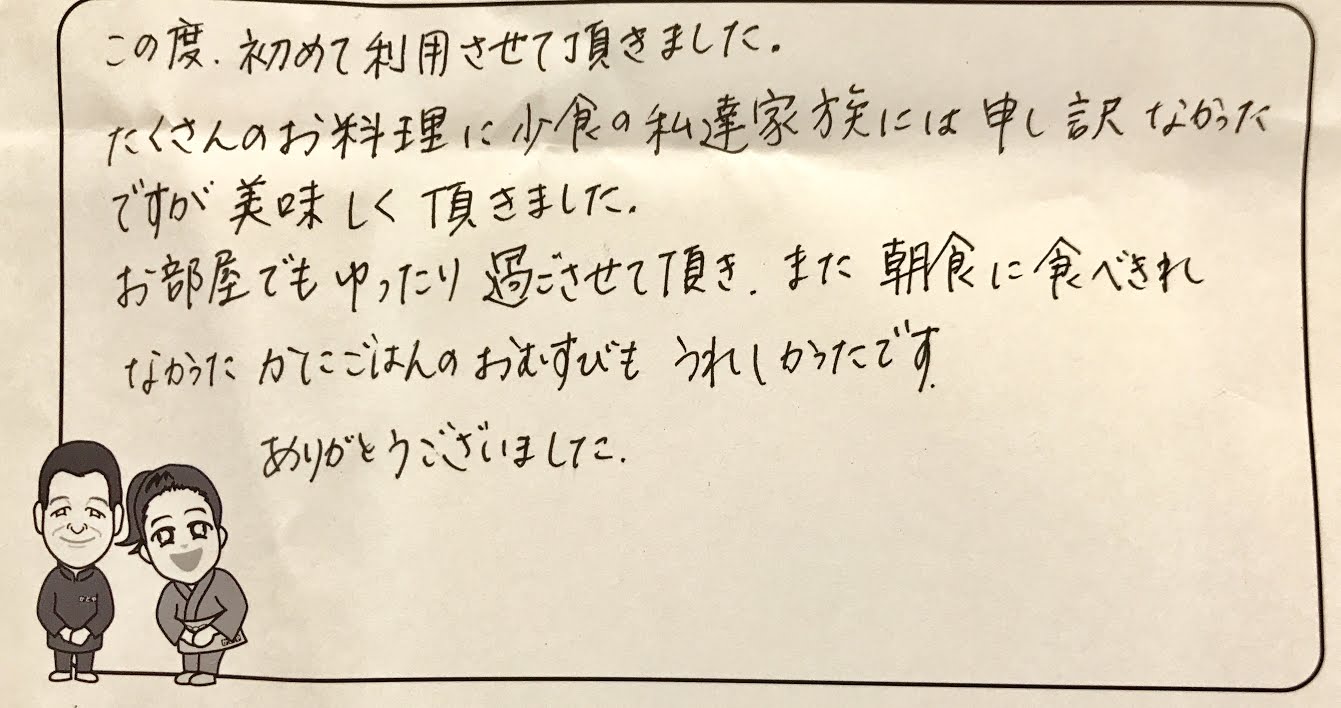 この度、初めて利用させて頂きました。
たくさんのお料理に少食の私達家族には申し訳なかった
ですが美味しく頂きました。
お部屋でもゆったり過ごさせて頂き、また朝食に食べきれ
なかったかにごはんのおむすびもうれしかったです。
ありがとうございました。